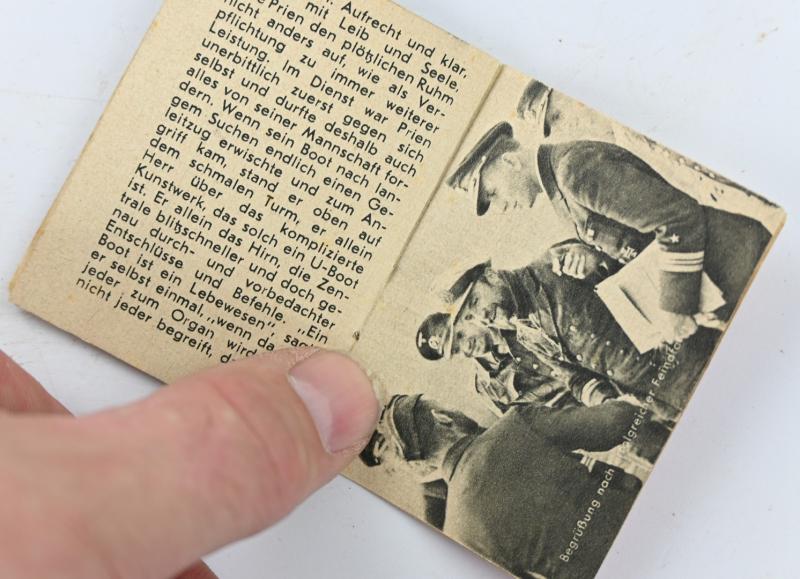 Aufrecht und klar,
mit Leib und Seele,
Prien den plötzlichen Ruhm
nicht anders auf, wie als Ver-
pflichtung zu immer weiterer
Leistung. Im Dienst war Prien
unerbittlich zuerst gegen sich
selbst und durfte deshalb auch
alles von seiner Mannschaft for-
dern. Wenn sein Boot nach lan-
gem Suchen endlich einen Ge-
leitzug erwischte und zum An-
griff kam, stand er oben auf
dem schmalen Turm, er allein
Herr über das komplizierte
Kunstwerk, das solch ein U-Boot
ist. Er allein das Hirn, die Zen-
trale blitzschneller und doch ge-
nau durch- und vorbedachter
Entschlüsse und Befehle. „Ein
Boot ist ein Lebewesen“,
er selbst einmal, „wenn da
jeder zum Organ wird
nicht jeder begreift,
Begrüßung nach